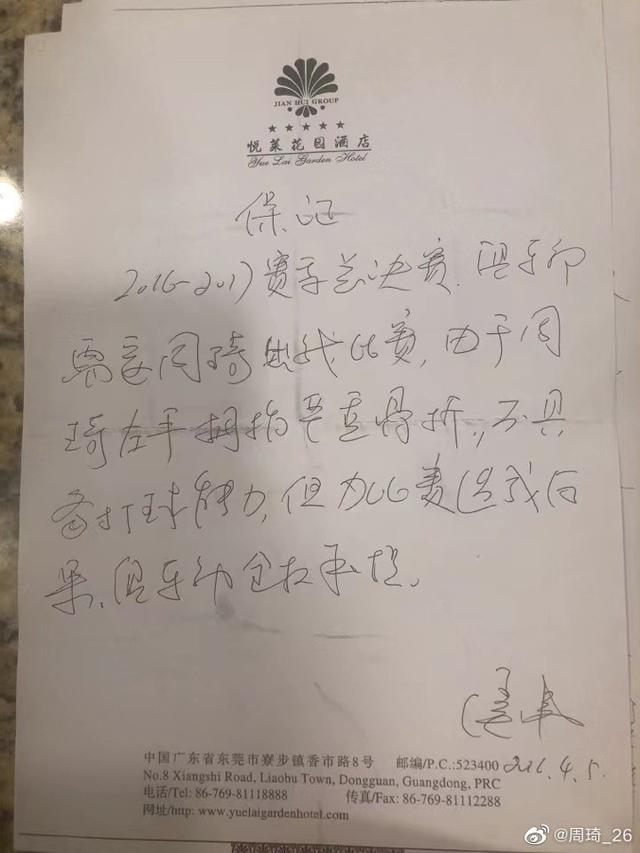 JIAN HUI GROUP
悦莱花园酒店
Yue Lai Garden Hotel
保证
2016-2017赛季总决赛.俱乐卩
需要周琦出战比赛,由于周
琦左手拇指严重骨折,不具
备打球能力,但为比赛造成后
果,俱乐卩全权承担.
中国广东省东莞市寮步镇香市路8号 邮编/P.C.:523400 2016.4.5.
No.8 Xiangshi Road, Liaobu Town, Dongguan, Guangdong, PRC
电话/Tel: 86-769-81118888 传真/Fax: 86-769-81112288
网址/http: www.yuelaigardenhotel.com
@周琦_26